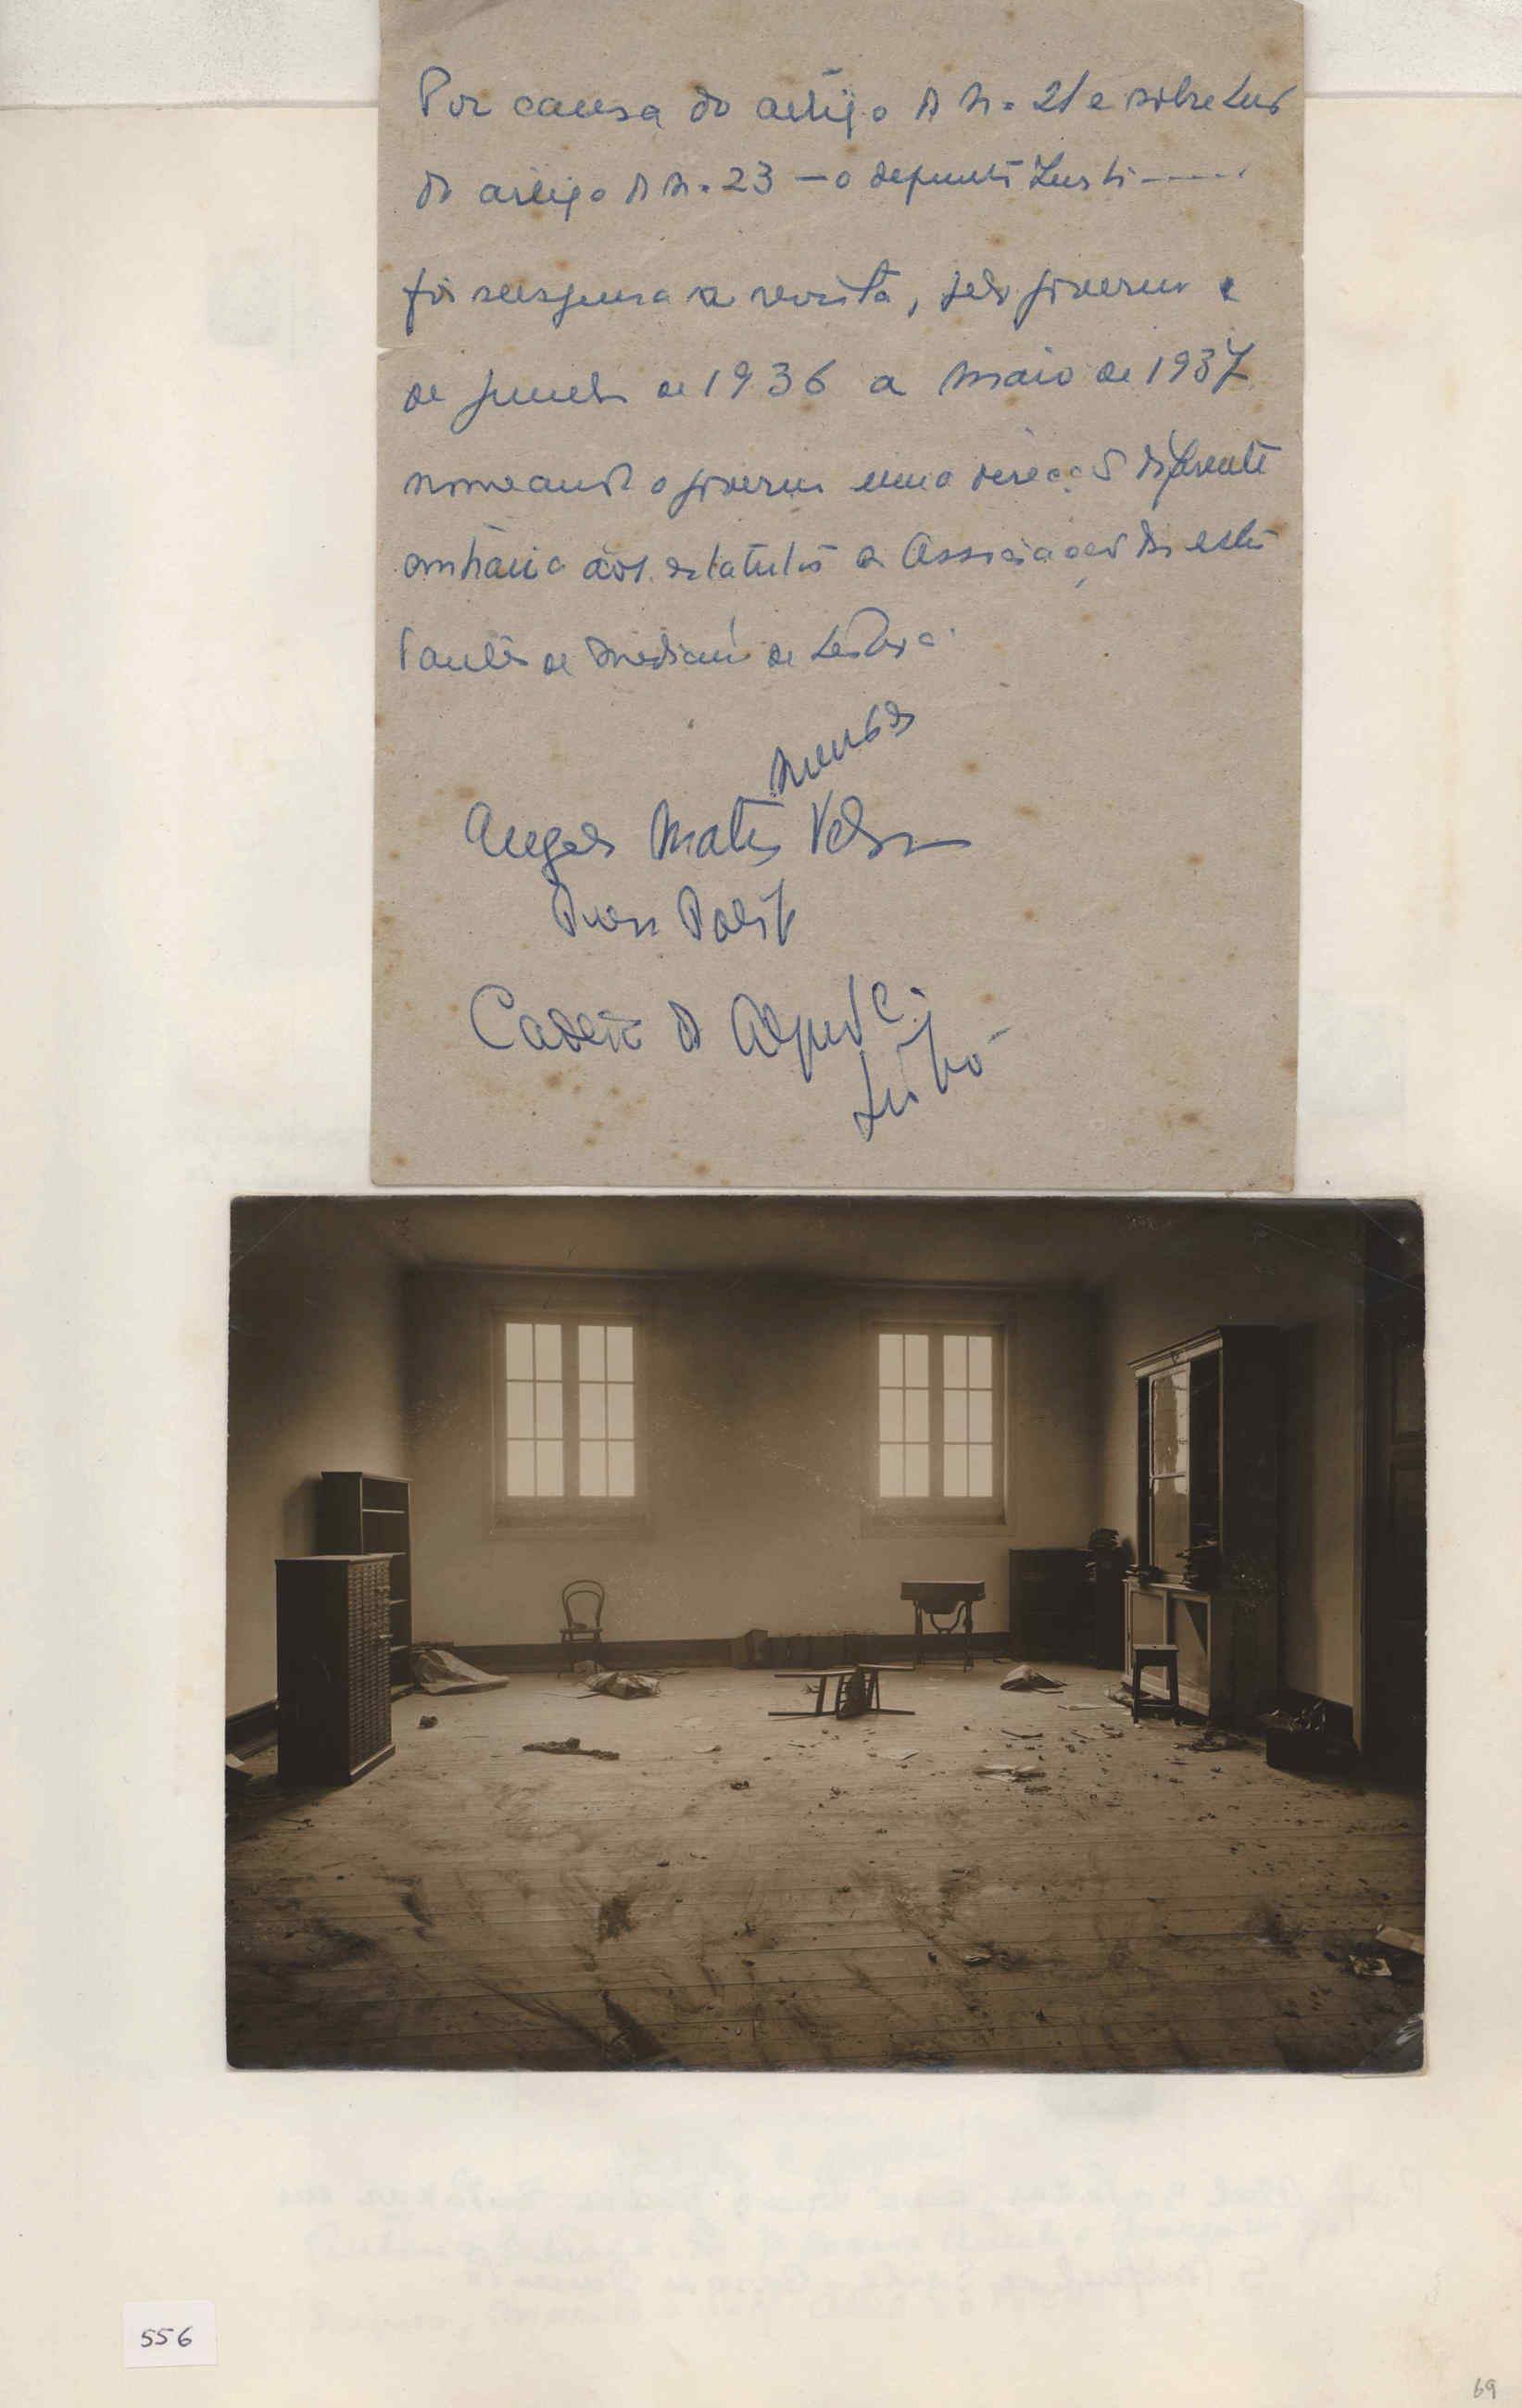 Por causa do artigo do n.º 21 e sobretudo
do artigo do n.º 23 — o defunto
foi suspensa a revista, pelo governo e
de junho de 1936 a maio de 1937
nomeando o governo uma direcção diferente
contrária aos estatutos da Associação dos estu
dantes de Medicina de Lisboa.
Mendes
Angelo Matos
Preso Polít
Cadeia do Aljube
Lisboa
556
69